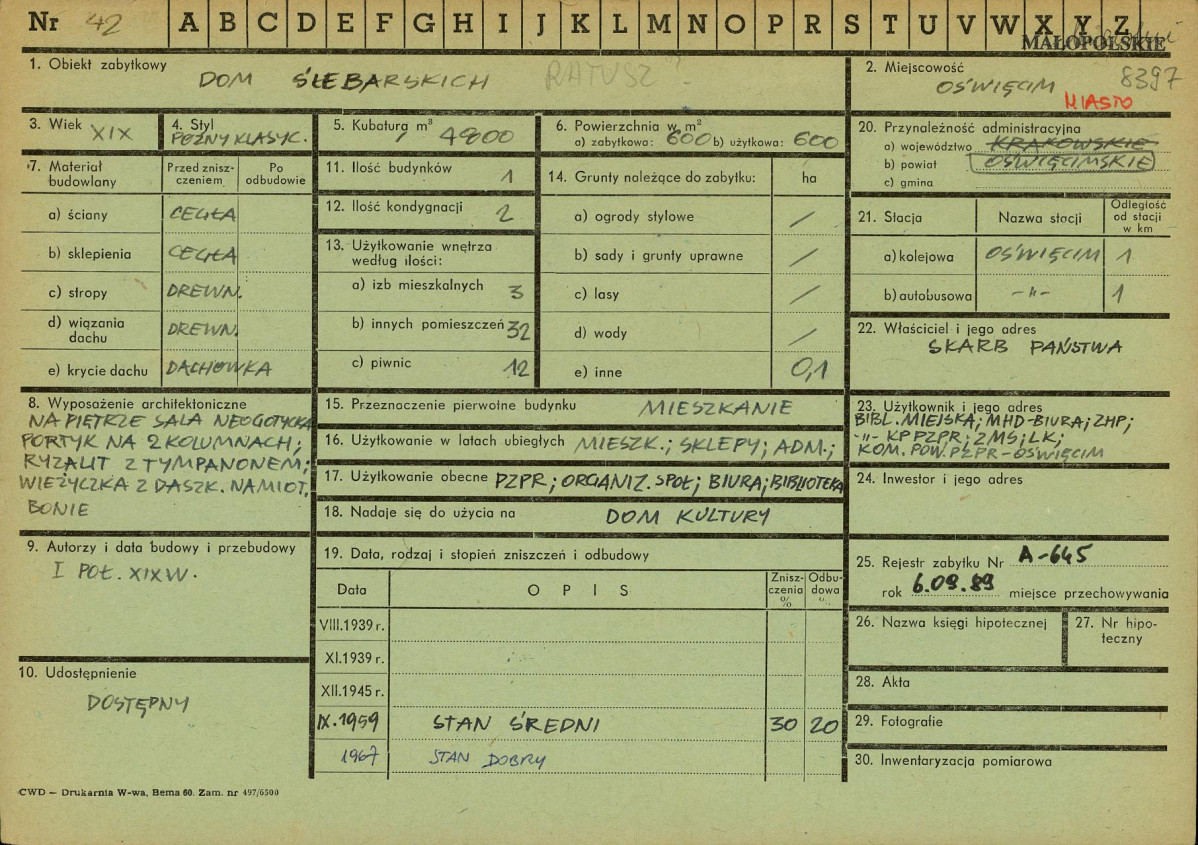 Nr 42 A B C D E F G H I J K L M N O P R S T U V W X Y Z
MAŁOPOLSKIE
1. Obiekt zabytkowy DOM ŚLEBARSKICH RATUSZ
2. Miejscowość OŚWIĘCIM 8397
MIASTO
3. Wiek XIX
4. Styl PÓŹNY KLASYC.
5. Kubatura m³ 4800
6. Powierzchnia w m²
a) zabytkowa: 600 b) użytkowa: 600
7. Materiał budowlany
Przed zniszczeniem
Po odbudowie
a) ściany CEGŁA
b) sklepienia CEGŁA
c) stropy DREWN.
d) wiązania dachu DREWN.
e) krycie dachu DACHÓWKA
8. Wyposażenie architektoniczne
NA PIĘTRZE SALA NEOGOTYCKA
PORTYK NA 2 KOLUMNACH;
RYZALIT Z TYMPANONEM;
WIEŻYCZKA Z DASZK. NAMIOT.
BONIE
9. Autorzy i data budowy i przebudowy
I POŁ. XIX W.
10. Udostępnienie
DOSTĘPNY
11. Ilość budynków 1
12. Ilość kondygnacji 2
13. Użytkowanie wnętrza
według ilości:
a) izb mieszkalnych 3
b) innych pomieszczeń 32
c) piwnic 12
14. Grunty należące do zabytku: ha
a) ogrody stylowe /
b) sady i grunty uprawne /
c) lasy /
d) wody /
e) inne 0,1
15. Przeznaczenie pierwotne budynku MIESZKANIE
16. Użytkowanie w latach ubiegłych MIESZK.; SKLEPY; ADM.;
17. Użytkowanie obecne PZPR; ORGANIZ. SPOŁ; BIURA; BIBLIOTEKA
18. Nadaje się do użycia na DOM KULTURY
19. Data, rodzaj i stopień zniszczeń i odbudowy
Data OPIS Zniszczenia % Odbudowa %
VIII.1939 r.
XI.1939 r.
XII.1945 r.
IX.1959 STAN ŚREDNI 30 20
1967 STAN DOBRY
20. Przynależność administracyjna
a) województwo KRAKOWSKIE
b) powiat OŚWIĘCIMSKIE
c) gmina
21. Stacja Nazwa stacji Odległość od stacji w km
a) kolejowa OŚWIĘCIM 1
b) autobusowa -"- 1
22. Właściciel i jego adres
SKARB PAŃSTWA
23. Użytkownik i jego adres
BIBL. MIEJSKA; MHD-BIURA; ZHP;
-"- KP PZPR; ZMS; LK;
KOM. POW. PZPR-OŚWIĘCIM
24. Inwestor i jego adres
25. Rejestr zabytku Nr A-645
rok 6.09.89 miejsce przechowywania
26. Nazwa księgi hipotecznej
27. Nr hipoteczny
28. Akta
29. Fotografie
30. Inwentaryzacja pomiarowa
CWD — Drukarnia W-wa, Bema 60. Zam. nr 497/6500